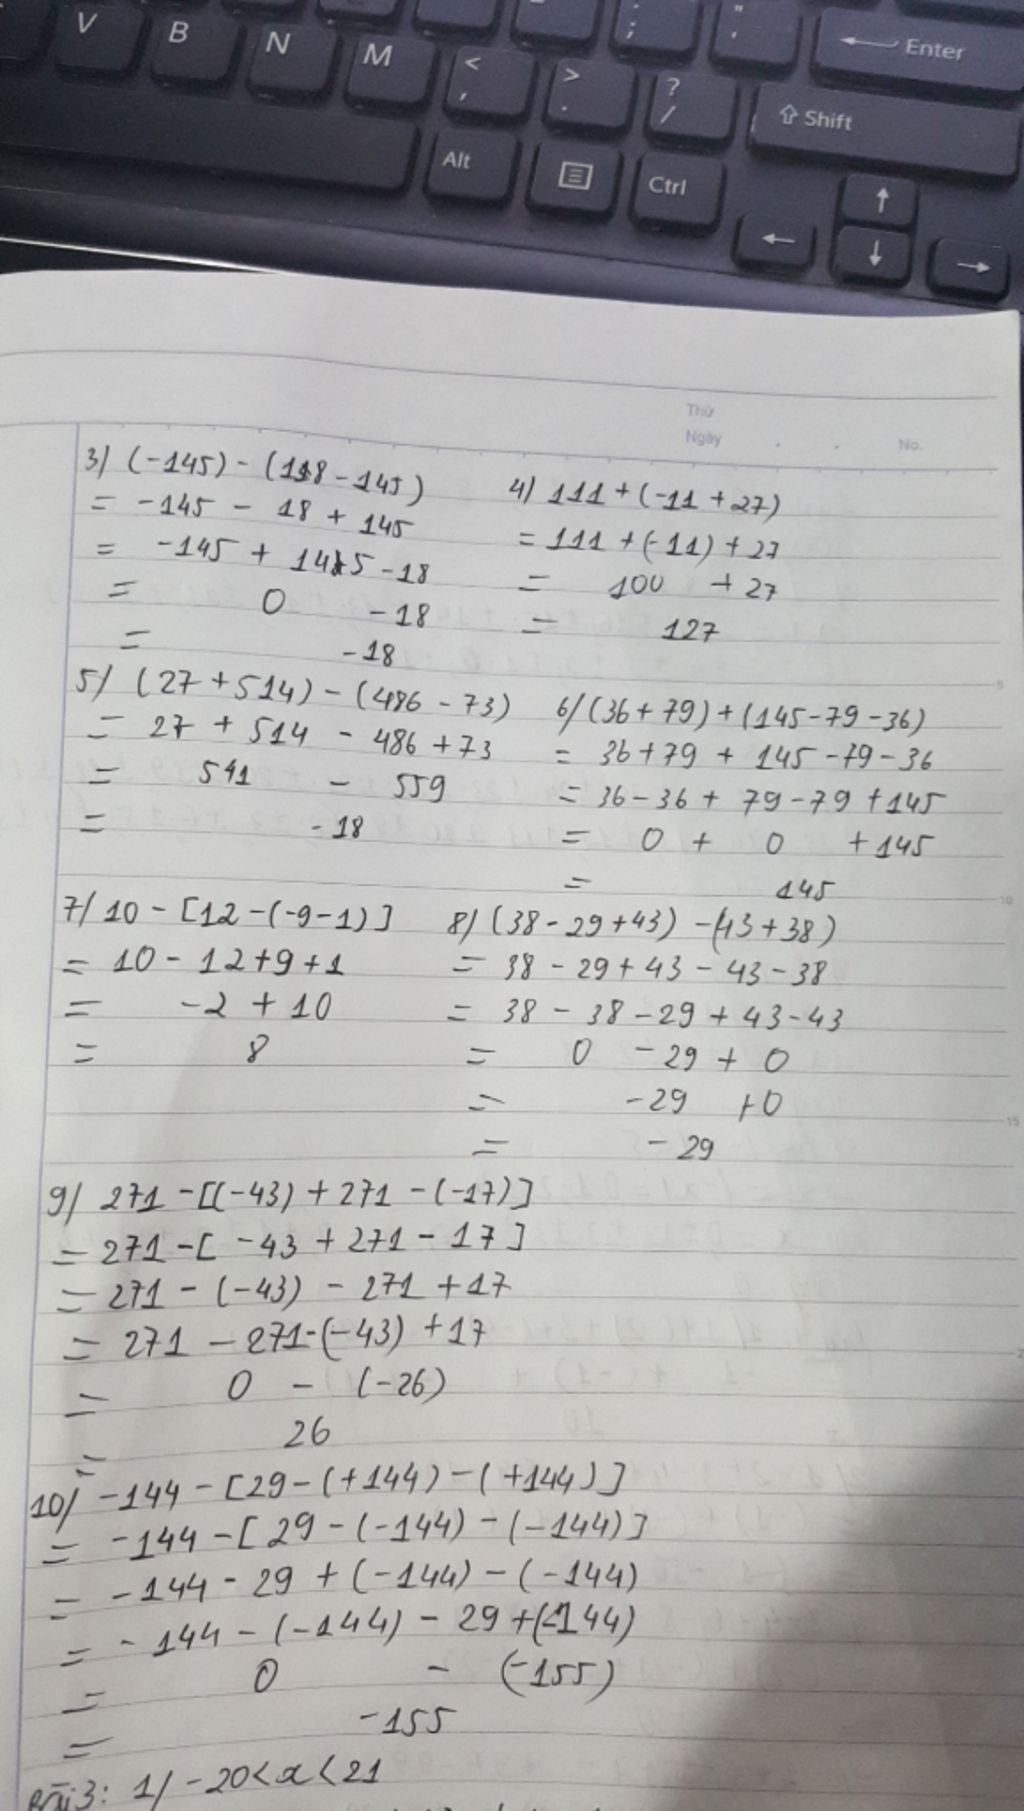 V B N M < , > . ? / ; : " ' ← Enter
⇧ Shift
Alt Ctrl ↑
← ↓ →
Thứ
Ngày . . No.
3/ (-145) - (118 - 145)
= -145 - 18 + 145
= -145 + 145 - 18
= 0 - 18
= -18
4/ 111 + (-11 + 27)
= 111 + (-11) + 27
= 100 + 27
= 127
5/ (27 + 514) - (486 - 73)
= 27 + 514 - 486 + 73
= 541 - 559
= -18
6/ (36 + 79) + (145 - 79 - 36)
= 36 + 79 + 145 - 79 - 36
= 36 - 36 + 79 - 79 + 145
= 0 + 0 + 145
= 145
7/ 10 - [12 - (-9 - 1)]
= 10 - 12 + 9 + 1
= -2 + 10
= 8
8/ (38 - 29 + 43) - (43 + 38)
= 38 - 29 + 43 - 43 - 38
= 38 - 38 - 29 + 43 - 43
= 0 - 29 + 0
= -29 + 0
= -29
9/ 271 - [(-43) + 271 - (-17)]
= 271 - [ -43 + 271 - 17 ]
= 271 - (-43) - 271 + 17
= 271 - 271 - (-43) + 17
= 0 - (-26)
= 26
10/ -144 - [29 - (+144) - (+144)]
= -144 - [29 - (-144) - (-144)]
= -144 - 29 + (-144) - (-144)
= -144 - (-144) - 29 + (-144)
= 0 - (-155)
= -155
Bài 3: 1/ -20 < x < 21
5
10
15